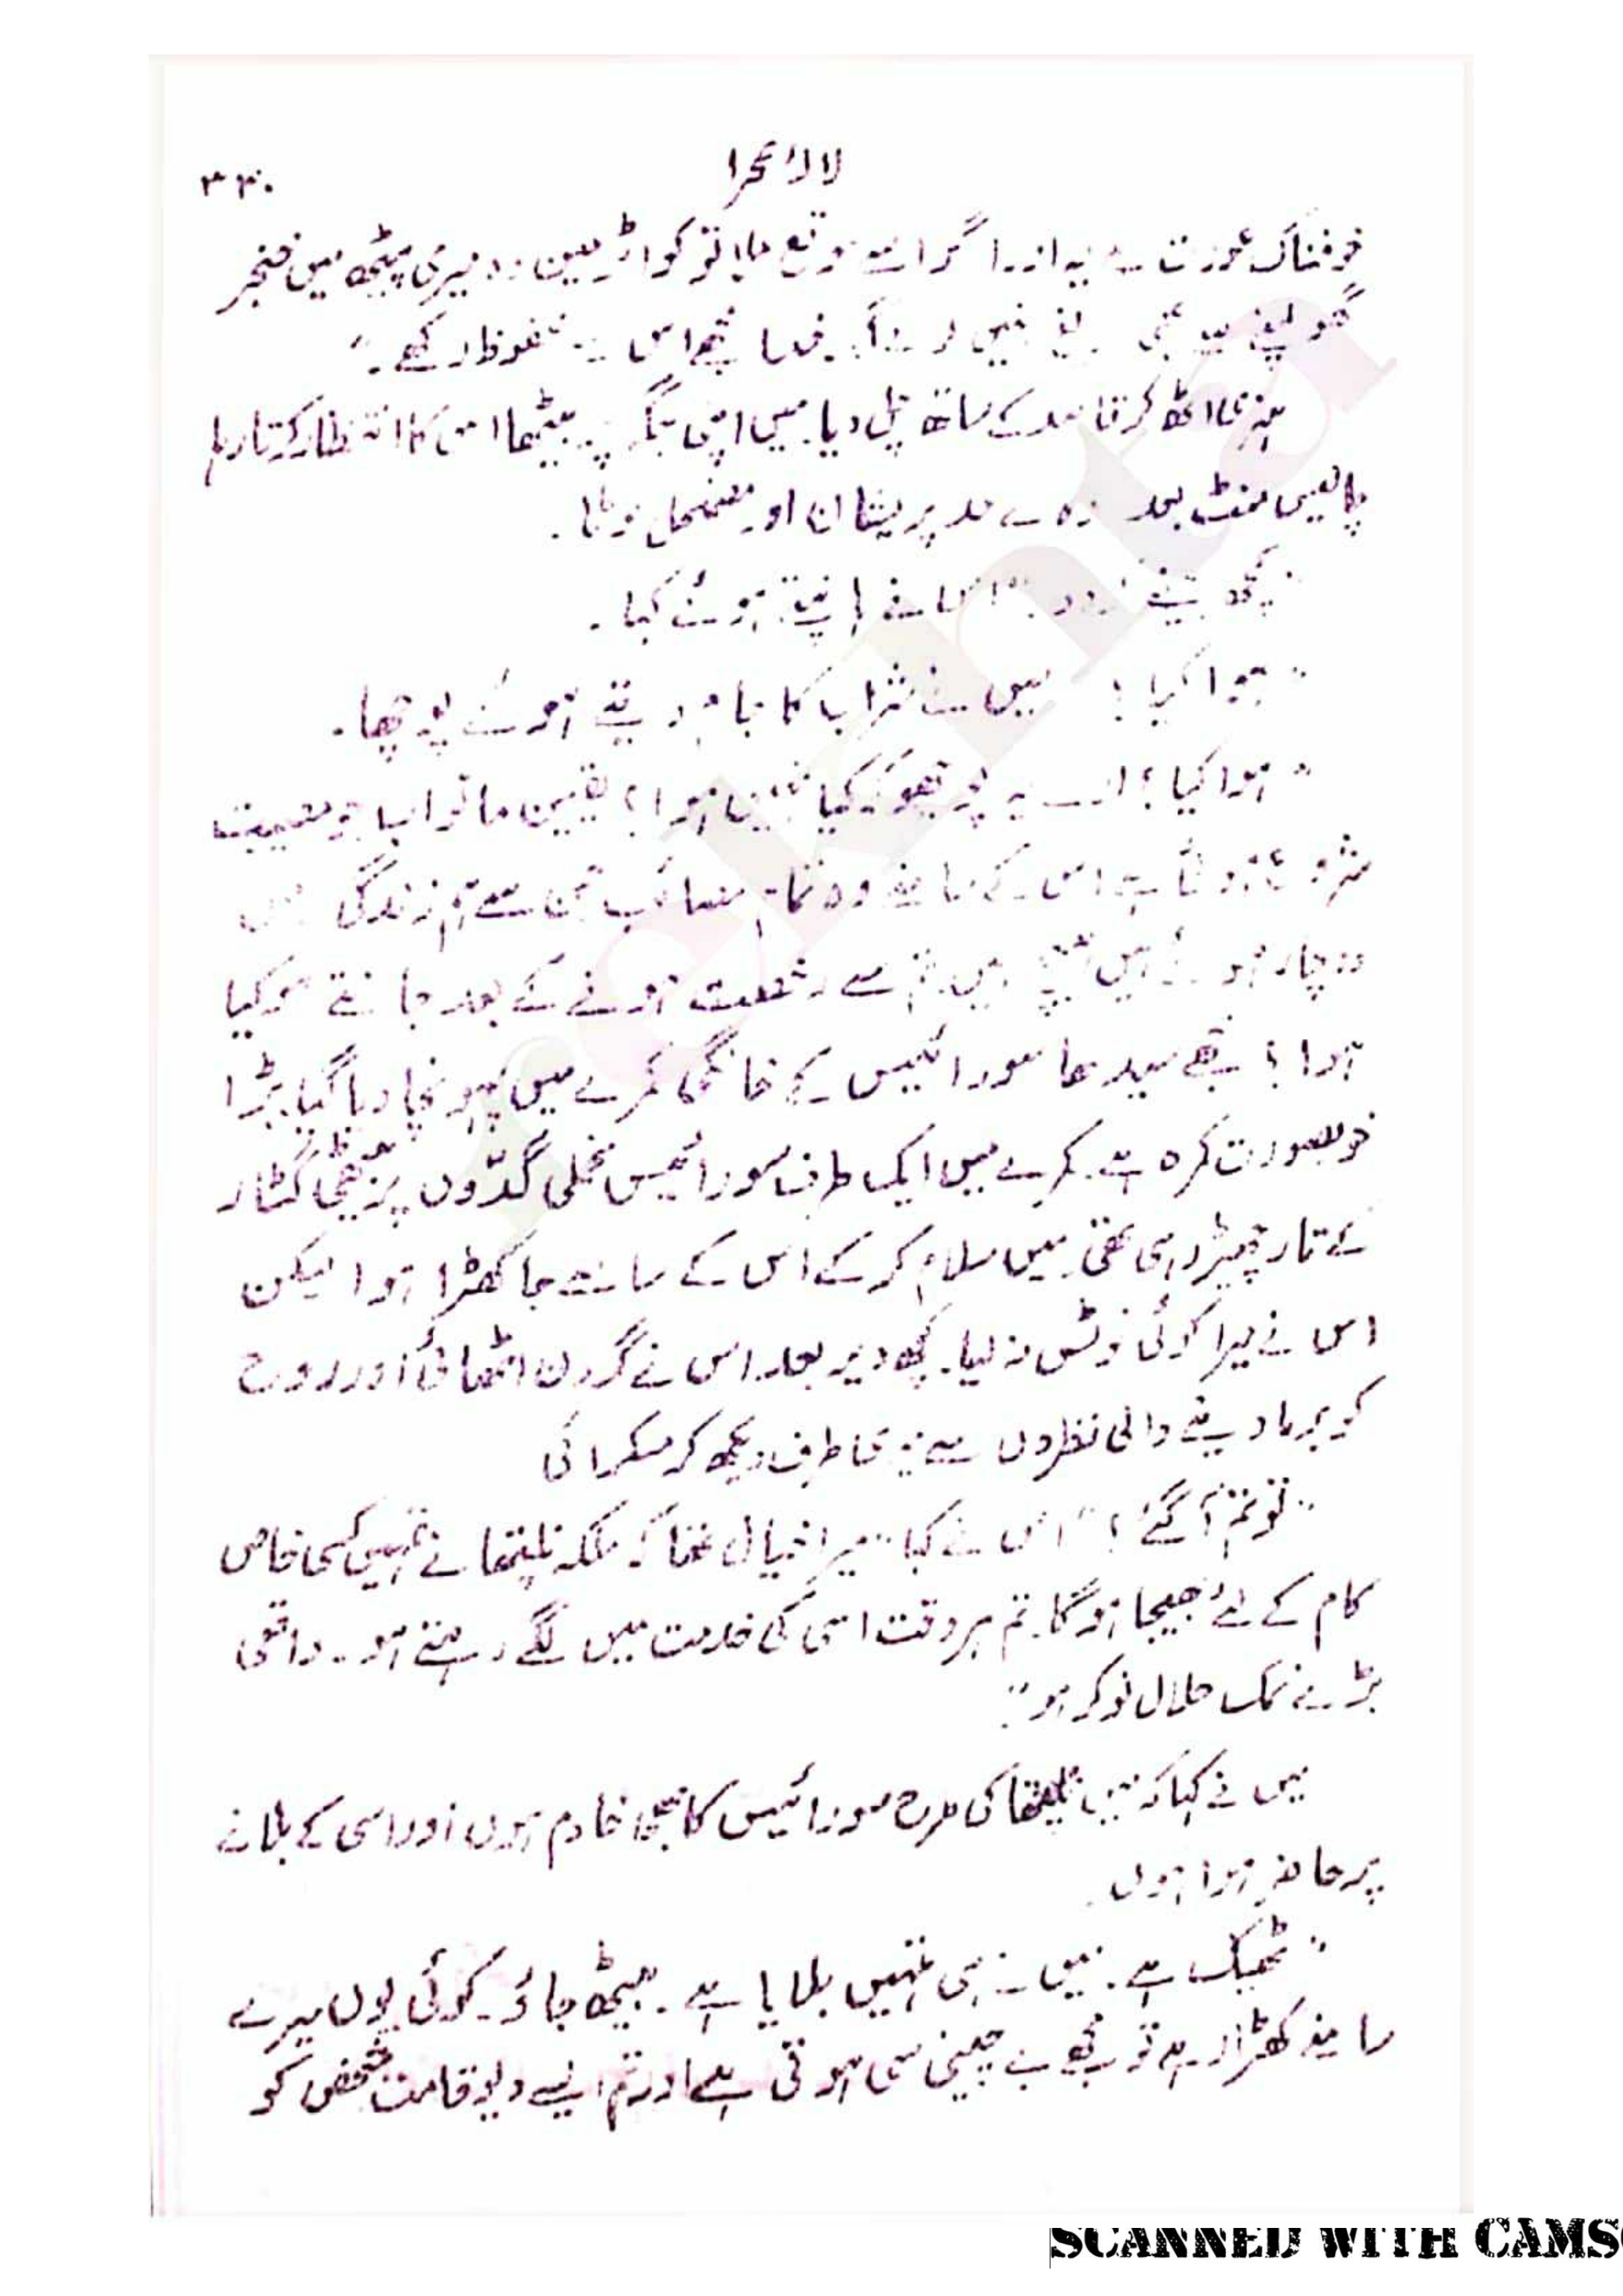 لالۂ صحرا
۳۳۰
خوفناک عورت ہے یہ اور اگر اسے موقع ملا تو کواڑمین وہ میری پیٹھ میں خنجر
گھوپنے سے بھی نہیں خدا مجھے اس سے محفوظ رکھے۔"
اٹھ کر قاصد کے ساتھ چل دیا۔ میں اپنی جگہ پر بیٹھا اس کا انتظار کرتا رہا
چالیس منٹ بعد وہ بے حد پریشان اور مضمحل لوٹا۔
"کچھ پینے کو دو۔" اس نے ہوئے کہا۔
"ہوا کیا؟" میں نے شراب کا جام دیتے ہوئے پوچھا۔
"ہوا کیا؟ ارے یہ پوچھو کہ کیا نہیں ہوا؟ یقین مانو اب جو مصیبت
شروع ہوئی ہے اس کے سامنے وہ تمام مصائب جن سے ہم زندگی میں
دوچار ہوئے ہیں ہیچ ہیں۔ تم سے رخصت ہونے کے بعد جانتے ہو کیا
ہوا؟ مجھے سیدھا سورائیس کے خانگی کمرے میں پہونچا دیا گیا۔ بڑا
خوبصورت کمرہ ہے۔ کمرے میں ایک طرف سورائیس مخملی گدّوں پر بیٹھی گٹار
کے تار چھیڑ رہی تھی۔ میں سلام کر کے اس کے سامنے جا کھڑا ہوا لیکن
اس نے میرا کوئی نوٹس نہ لیا۔ کچھ دیر بعد اس نے گردن اٹھائی اور روح
کو برما دینے والی نظروں سے میری طرف دیکھ کر مسکرائی
"تو تم آ گئے؟" اس نے کہا "میرا خیال تھا کہ ملکہ نلیفتھا نے تمہیں کسی خاص
کام کے لئے بھیجا ہوگا۔ تم ہر وقت اسی کی خدمت میں لگے رہتے ہو۔ واقعی
بڑے نمک حلال نوکر ہو"۔
میں نے کہا کہ میں نلیفتھا کی طرح سورائیس کا بھی خادم ہوں اور اسی کے بلانے
پر حاضر ہوا ہوں۔
"ٹھیک ہے۔ میں نے ہی تمہیں بلایا ہے۔ بیٹھ جاؤ۔ کوئی یوں میرے
سامنے کھڑا رہے تو مجھے بے چینی سی ہوتی ہے اور تم ایسے دیو قامت شخص کو
SCANNED WITH CAMS